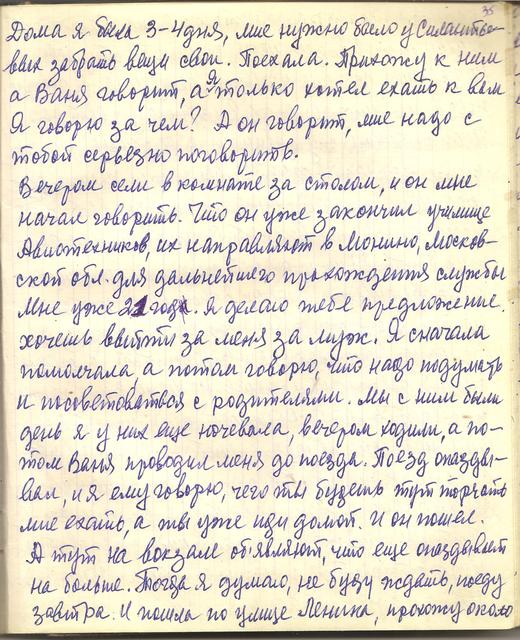 35
Дома я была 3-4 дня, мне нужно было у Силантье-
вых забрать вещи свои. Поехала. Прихожу к ним
а Ваня говорит, а я только хотел ехать к вам
Я говорю за чем? А он говорит, мне надо с
тобой серьёзно поговорить.
Вечером сели в комнате за столом, и он мне
начал говорить. Что он уже закончил училище
Авиотехников, их направляют в Монино, Москов-
ской обл. для дальнейшего прохождения службы
Мне уже 21 год. Я делаю тебе предложение
хочешь выйти за меня за муж. Я сначала
помолчала, а потом говорю, что надо подумать
и посоветоваться с родителями. Мы с ним были
день я у них еще ночевала, вечером ходили, а по-
том Ваня проводил меня до поезда. Поезд опазды-
вал, и я ему говорю, чего ты будешь тут торчать
мне ехать, а ты уже иди домой. И он пошел.
А тут на вокзале объявляют, что еще опаздывает
на больше. Тогда я думаю, не буду ждать, поеду
завтра. И пошла по улице Ленина, прохожу около